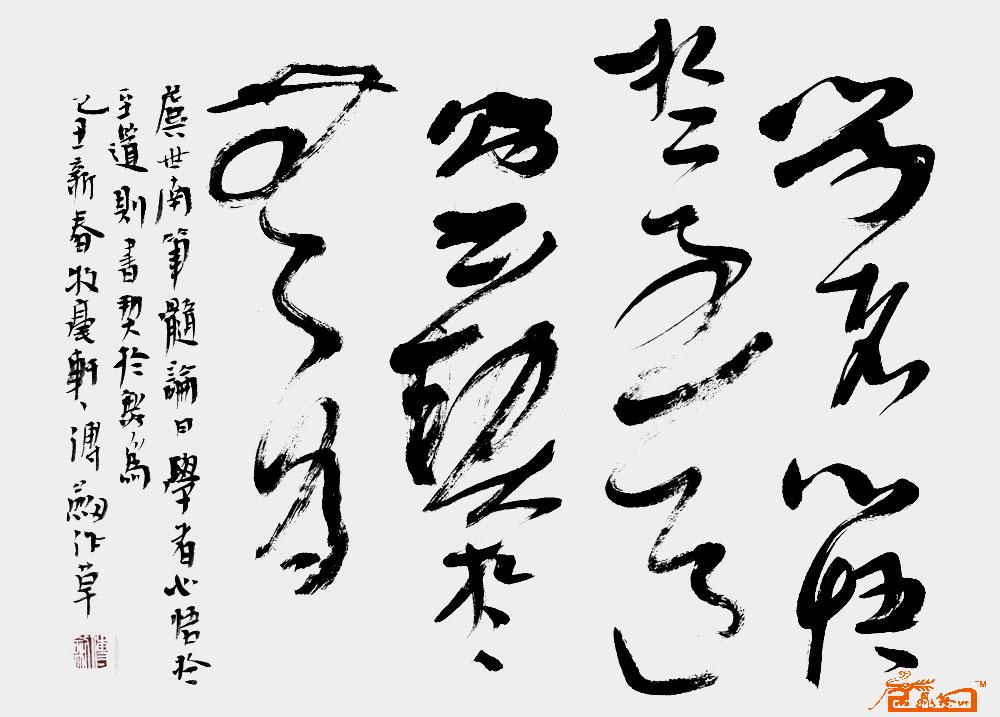 學者心悟
於至道
則書契於
無為
虞世南筆髓論曰學者心悟於
至道則書契於無為
己丑新春牧軒作草